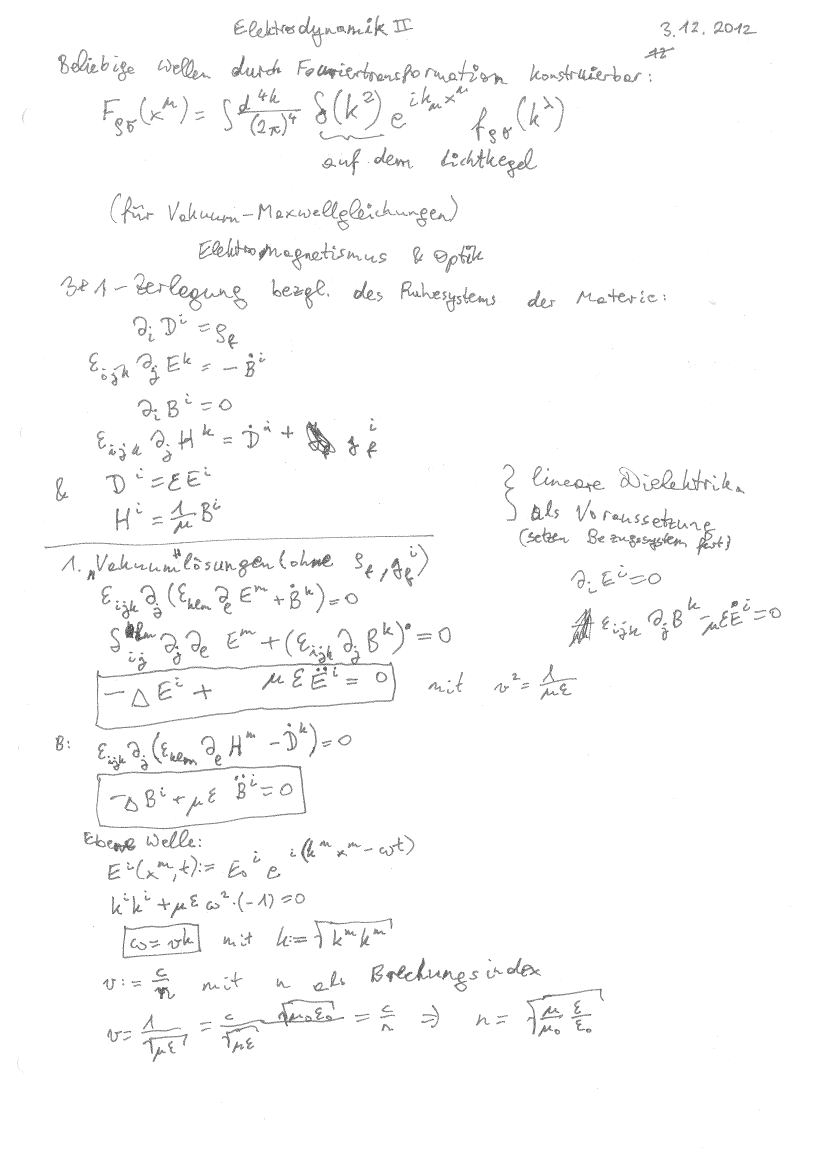 Elektrodynamik II 3.12.2012
Beliebige Wellen durch Fouriertransformation konstruierbar:
F_ρσ(x^μ) = ∫ d⁴k/(2π)⁴ δ(k²) e^{i k_μ x^μ} f_ρσ(k^λ)
auf dem Lichtkegel
(für Vakuum-Maxwellgleichungen)
Elektromagnetismus & Optik
3&1-Zerlegung bezgl. des Ruhesystems der Materie:
∂_i D^i = ρ_f
ε_ijk ∂_j E^k = -Ḃ^i
∂_i B^i = 0
ε_ijk ∂_j H^k = Ḋ^i + j_f^i
& D^i = εE^i
H^i = 1/μ B^i
} lineare Dielektrika
als Voraussetzung
(setzen Bezugssystem fest)
1. "Vakuum"lösungen (ohne ρ_f, j_f^i)
∂_i E^i = 0
ε_ijk ∂_j B^k - με Ė^i = 0
ε_ijk ∂_j (ε_klm ∂_l E^m + Ḃ^k) = 0
δ_ij^lm ∂_j ∂_l E^m + (ε_ijk ∂_j B^k)˙ = 0
-Δ E^i + με Ë^i = 0 mit v² = 1/με
B: ε_ijk ∂_j (ε_klm ∂_l H^m - Ḋ^k) = 0
-Δ B^i + με B̈^i = 0
Ebene Welle:
E^i(x^m, t) := E_0^i e^{i(k^m x^m - ωt)}
k^i k^i + με ω²·(-1) = 0
ω = vk mit k := √(k^m k^m)
v := c/n mit n als Brechungsindex
v = 1/√(με) = c/√(με) √(μ₀ε₀) = c/n ⇒ n = √(μ/μ₀ ε/ε₀)